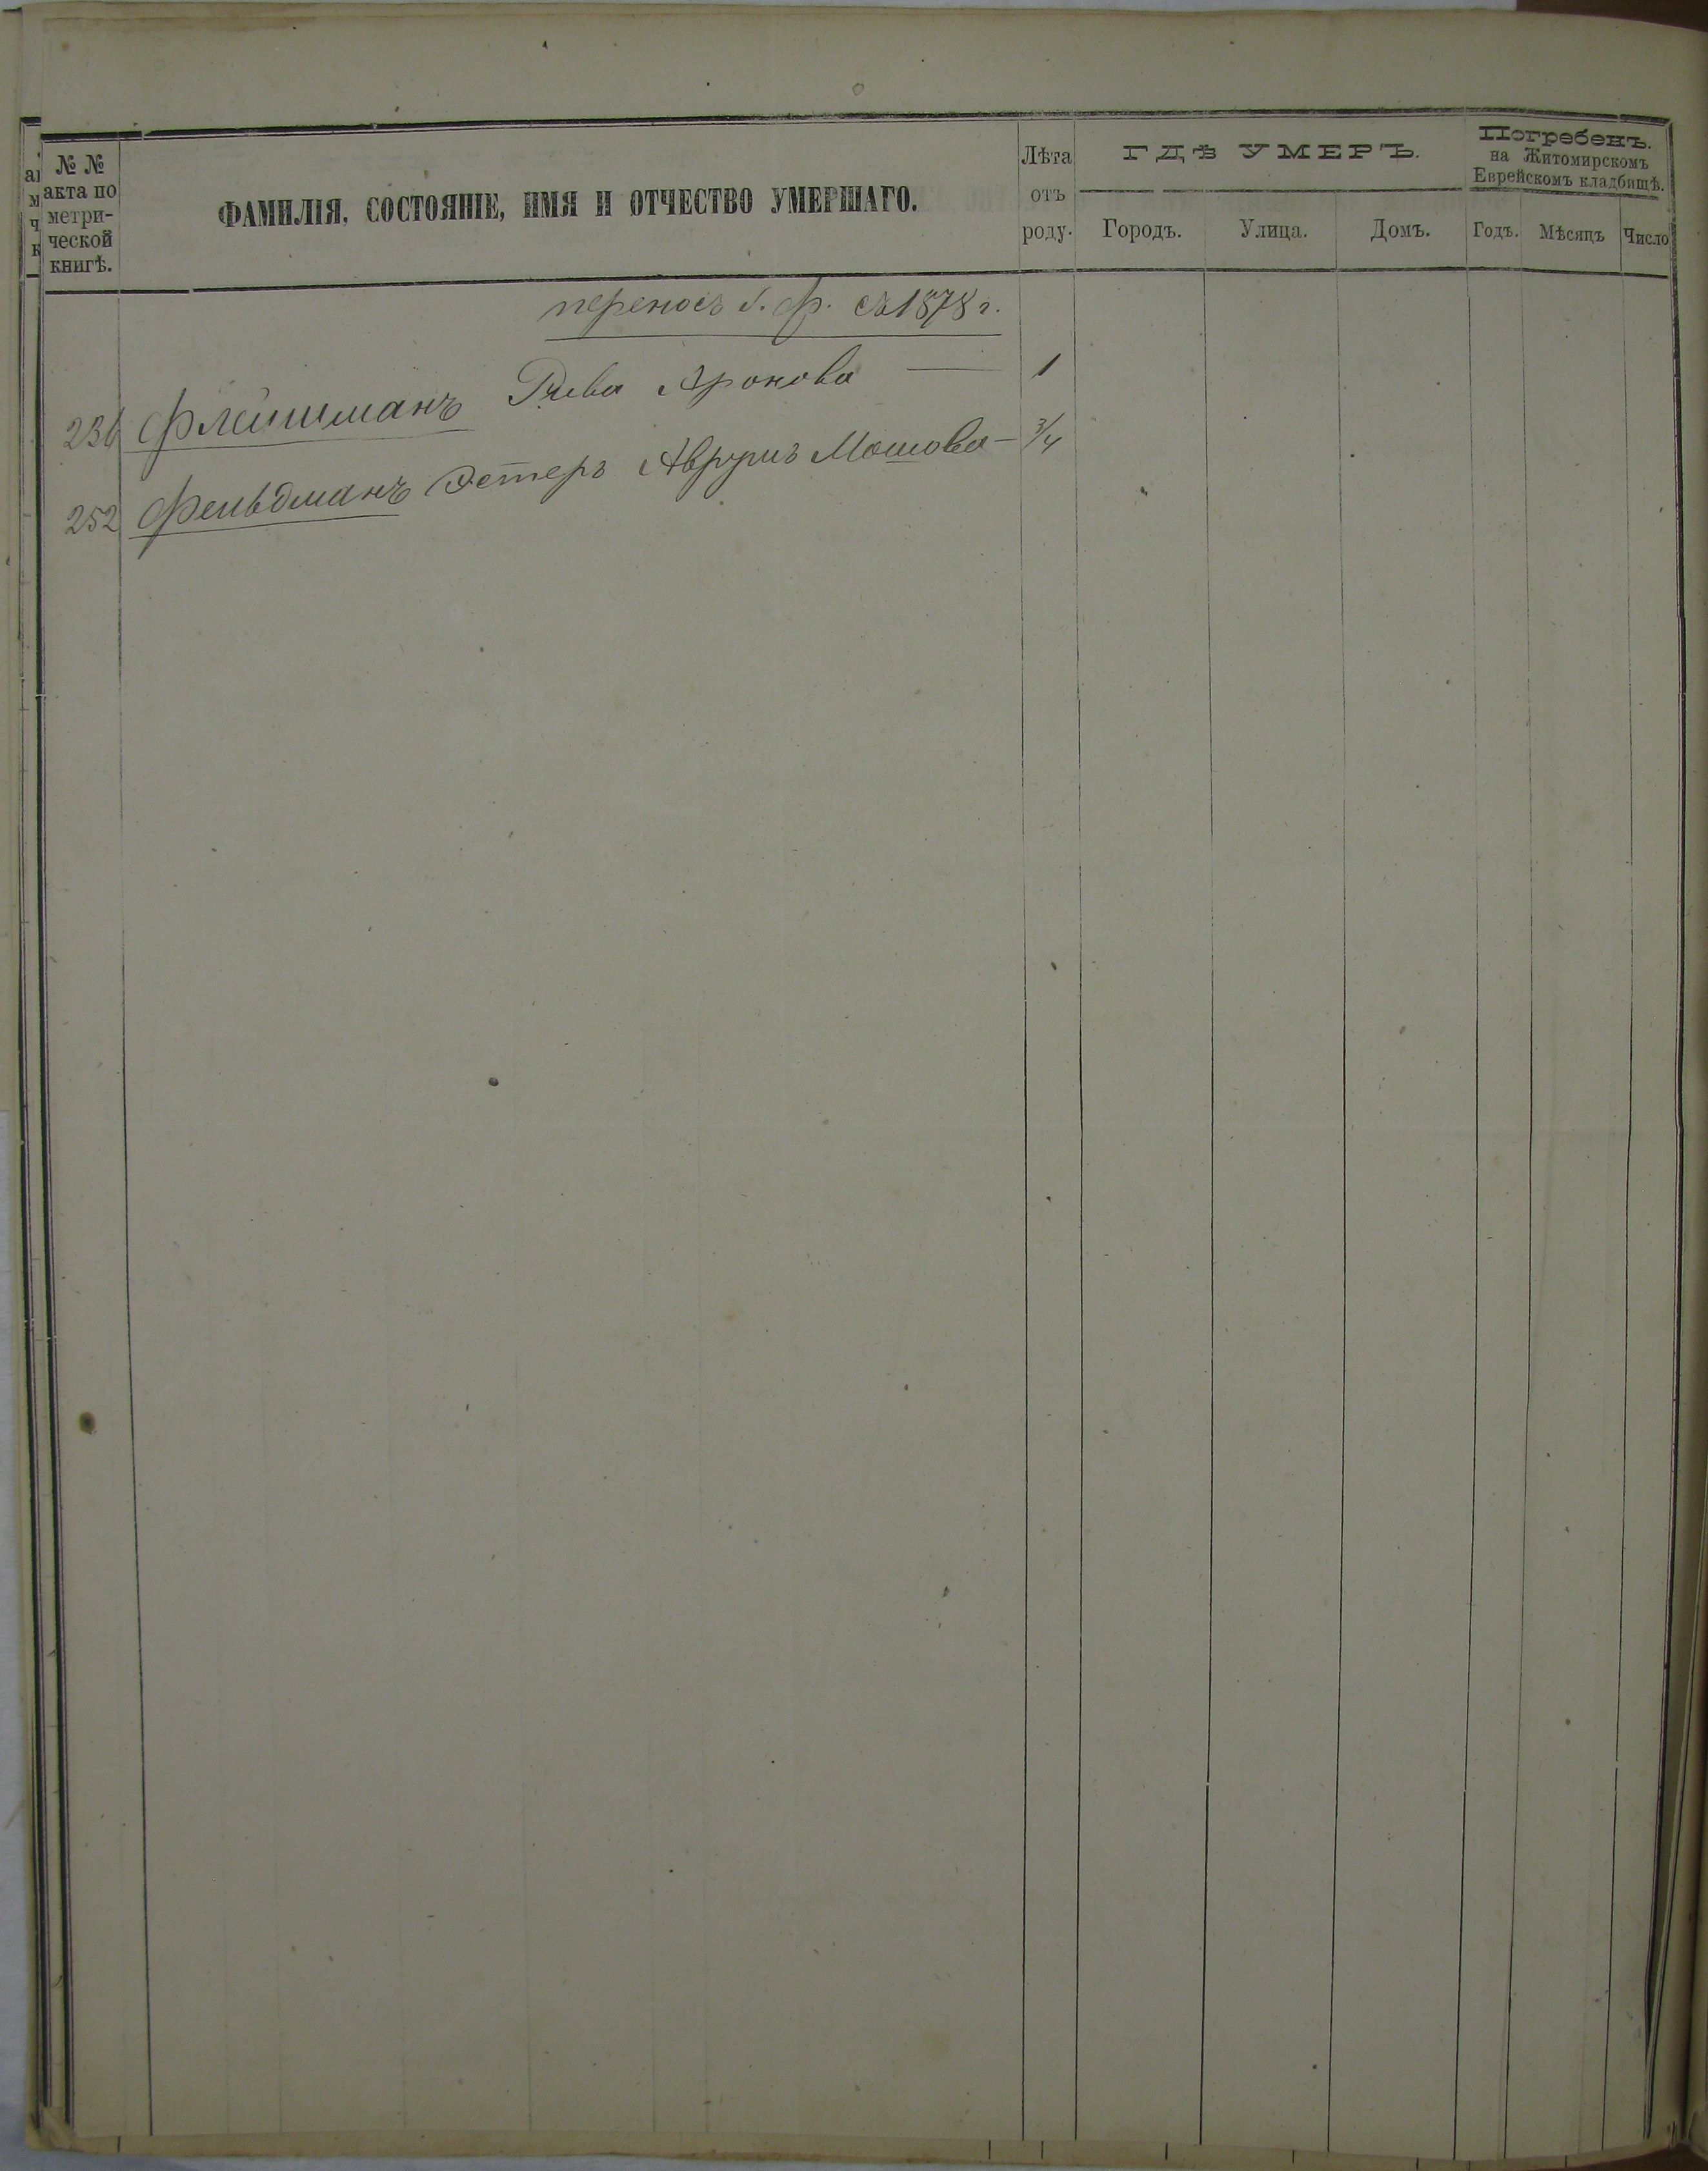 № №
акта по
метри-
ческой
книгѣ.
ФАМИЛІЯ, СОСТОЯНІЕ, ИМЯ И ОТЧЕСТВО УМЕРШАГО.
Лѣта
отъ
роду.
ГДѢ УМЕРЪ.
Городъ. Улица. Домъ.
Погребенъ.
на Житомирскомъ
Еврейскомъ кладбищѣ.
Годъ. Мѣсяцъ Число
переносъ Ф. съ 1878 г.
236 Флейшманъ Рива Аронова — 1
252 Фельдманъ Эстеръ Аврумъ Мошова — 3/4